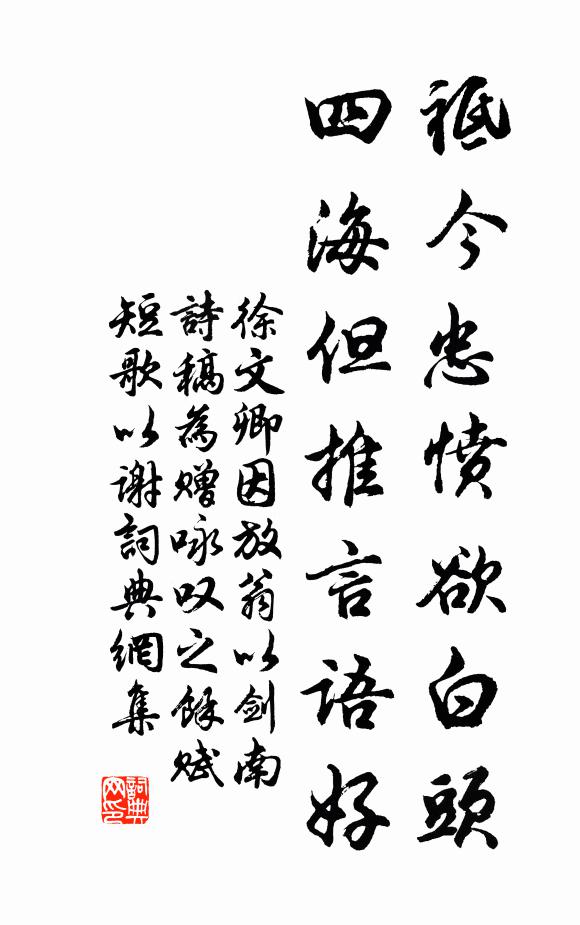 祗今忠憤欲白頭
四海但推言語好
徐文卿因放翁以剑南
詩稿為贈咏叹之餘赋
短歌以谢詞典網集
詞典网印